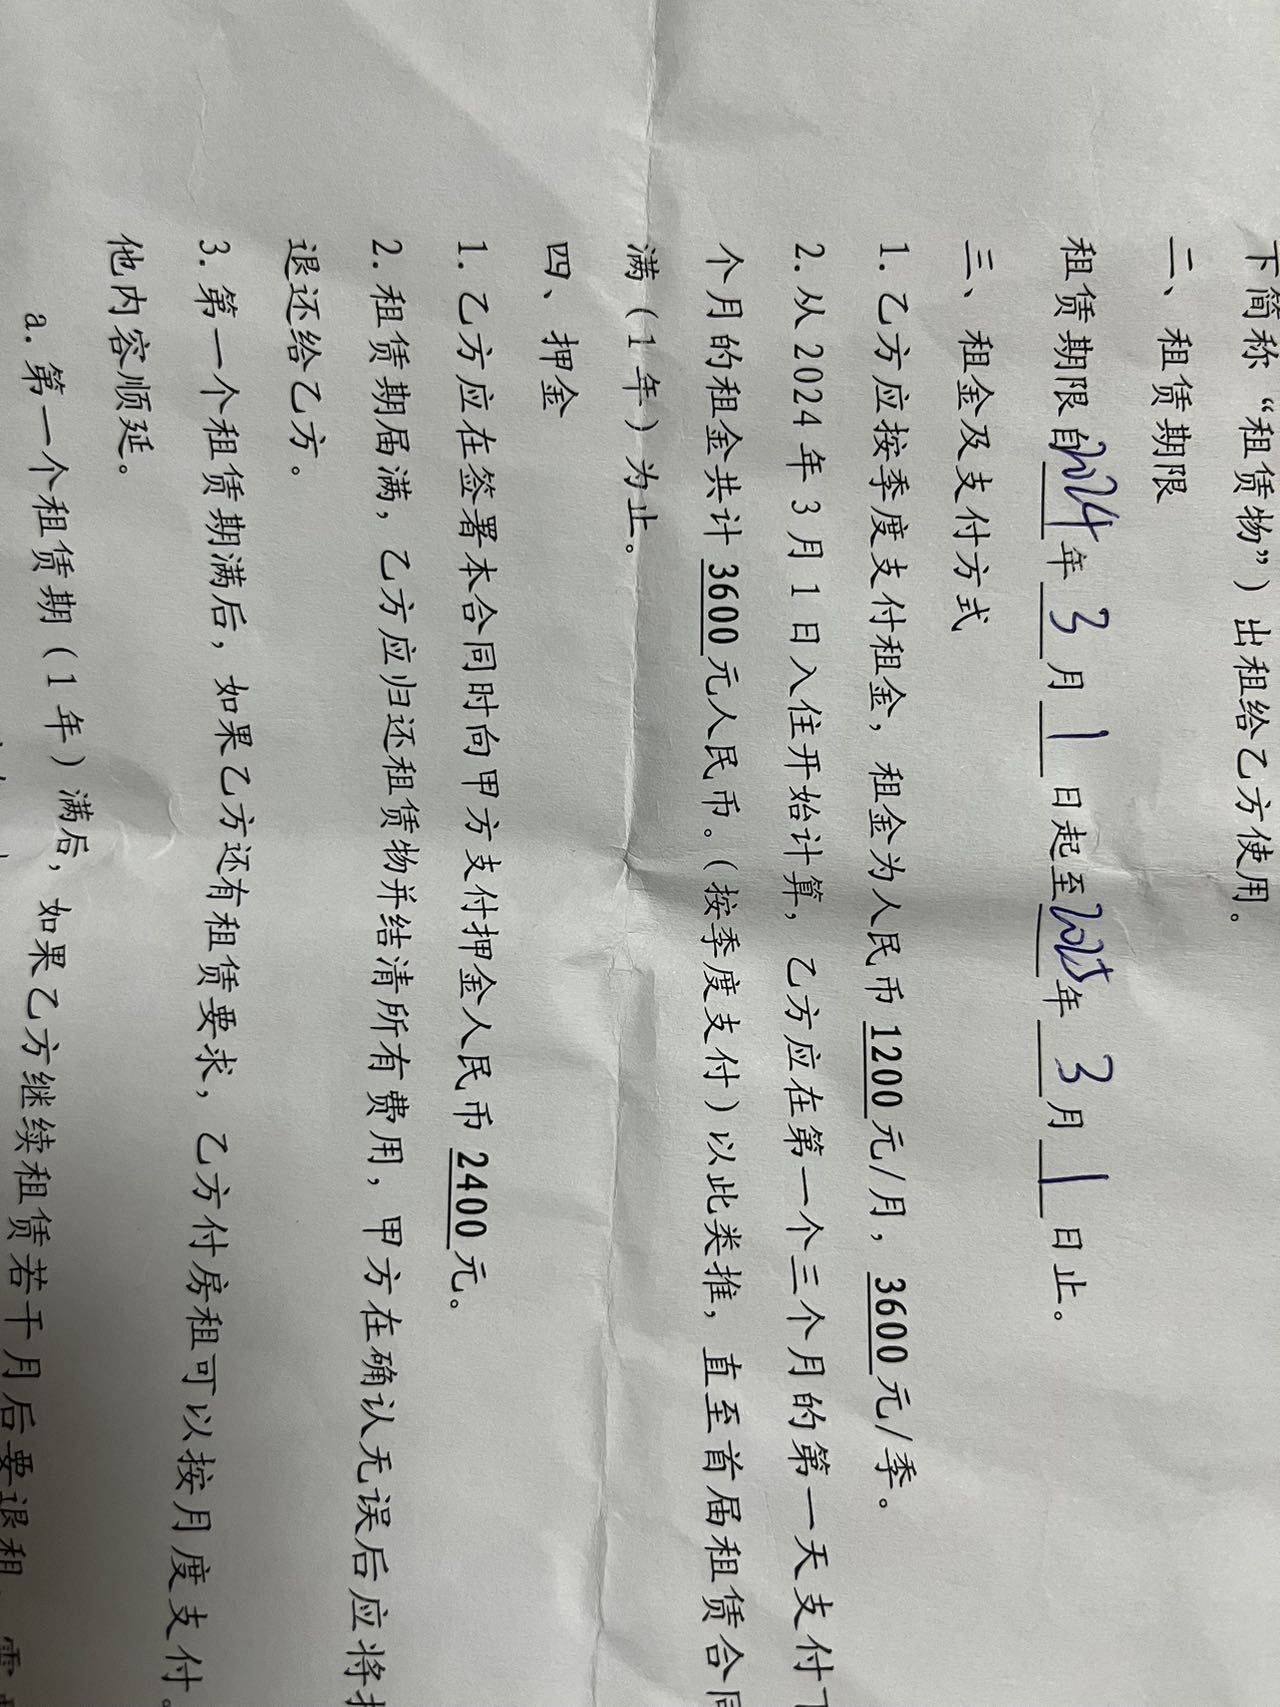 下简称“租赁物”）出租给乙方使用。
二、租赁期限
租赁期限自2024年3月1日起至2025年3月1日止。
三、租金及支付方式
1.乙方应按季度支付租金，租金为人民币1200元/月，3600元/季。
2.从2024年3月1日入住开始计算，乙方应在第一个三个月的第一天支付
个月的租金共计3600元人民币。（按季度支付）以此类推，直至首届租赁合同
满（1年）为止。
四、押金
1.乙方应在签署本合同时向甲方支付押金人民币2400元。
2.租赁期届满，乙方应归还租赁物并结清所有费用，甲方在确认无误后应将
退还给乙方。
3.第一个租赁期满后，如果乙方还有租赁要求，乙方付房租可以按月度支付。
他内容顺延。
a.第一个租赁期（1年）满后，如果乙方继续租赁若干月后要退租